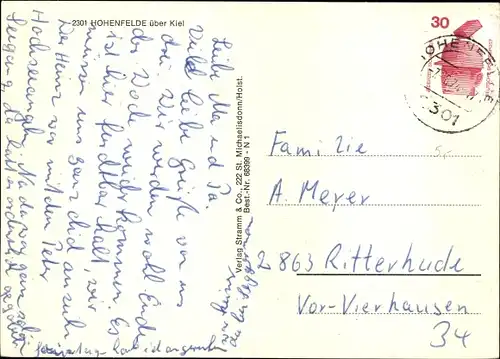 2301 HOHENFELDE über Kiel
Liebe Ma und Pa
Viele liebe Grüße von uns
drei. Wir werden wohl Ende
der Woche wieder kommen. Es
ist hier furchtbar kalt, wir
müssen uns ganz dick anziehn
Der Heinz war mit dem Peter
Hochseeangeln. Na da war ganz schön
Seegang, die hat es ordentlich
Verlag Stramm & Co., 222 St. Michaelisdonn/Holst.
Best.-Nr. 66399 - N 1
30
HOHENFELDE
2301
Familie
A. Meyer
2863 Ritterhude
Vor-Vierhausen
34